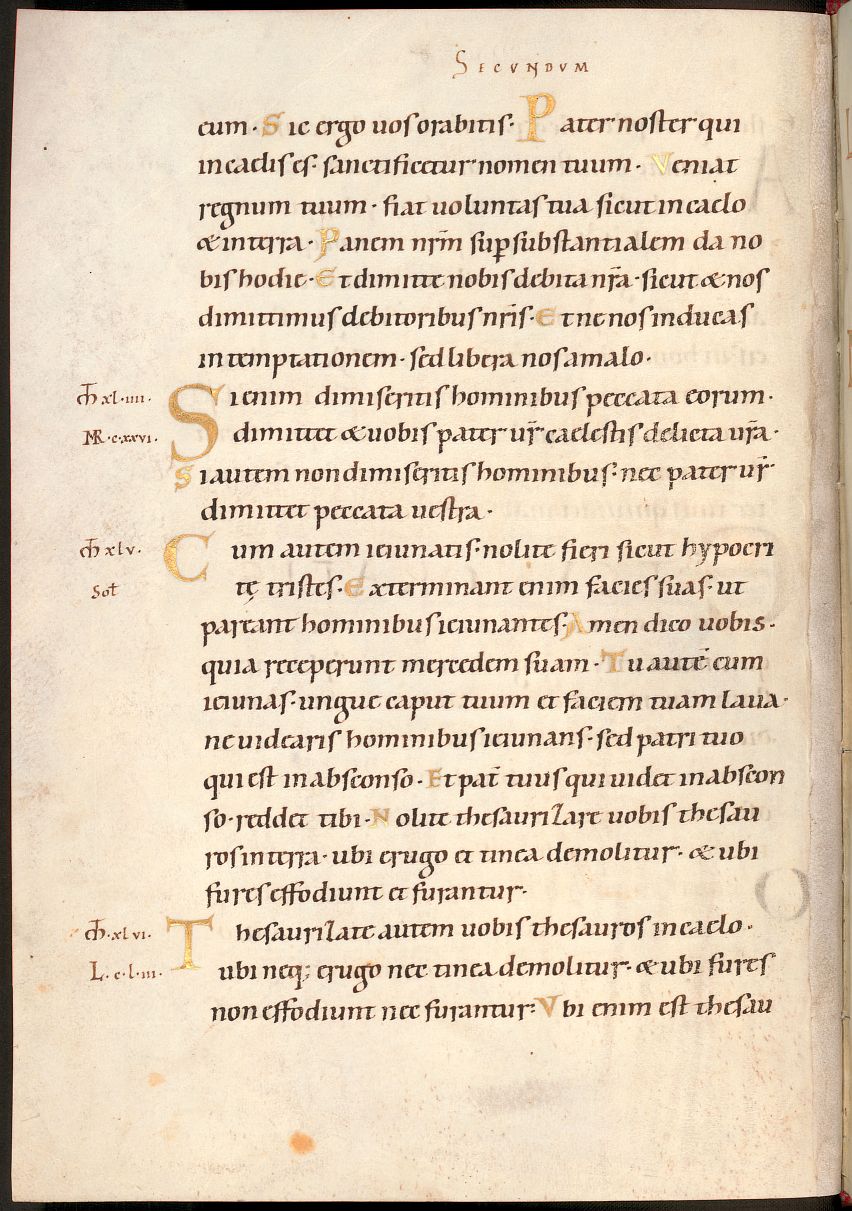 SECUNDUM
eum · Sic ergo uos orabitis · Pater noster qui
in caelis es · sanctificetur nomen tuum · Veniat
regnum tuum · fiat uoluntas tua sicut in caelo
& in terra · Panem nr̄m sup̱substantialem da no
bis hodie · Et dimitte nobis debita nr̄a · sicut & nos
dimittimus debitoribus nr̄is · Et ne nos inducas
in temptationem · sed libera nos a malo ·
m̄ xl · iiii ·
Si enim dimiseritis hominibus peccata eorum ·
MR · c · xxvi ·
dimittet & uobis pater ur̄ caelestis delicta ur̄a ·
Si autem non dimiseritis hominibus · nec pater ur̄
dimittet peccata uestra ·
m̄ xlv ·
Cum autem ieiunatis · nolite fieri sicut hypocri
sol̄
tę tristes · Exterminant enim facies suas · ut
pareant hominibus ieiunantes · Amen dico uobis ·
quia receperunt mercedem suam · Tu autē cum
ieiunas · ungue caput tuum et faciem tuam laua ·
ne uidearis hominibus ieiunans · sed patri tuo
qui est in absconso · Et pat̄ tuus qui uidet in abscon
so · reddet tibi · Nolite thesaurizare uobis thesau
ros in terra · ubi erugo et tinea demolitur · & ubi
fures effodiunt et furantur ·
m̄ · xlvi ·
Thesaurizate autem uobis thesauros in caelo ·
L · c · l · iii ·
ubi neq; erugo nec tinea demolitur · & ubi fures
non effodiunt nec furantur · Vbi enim est thesau